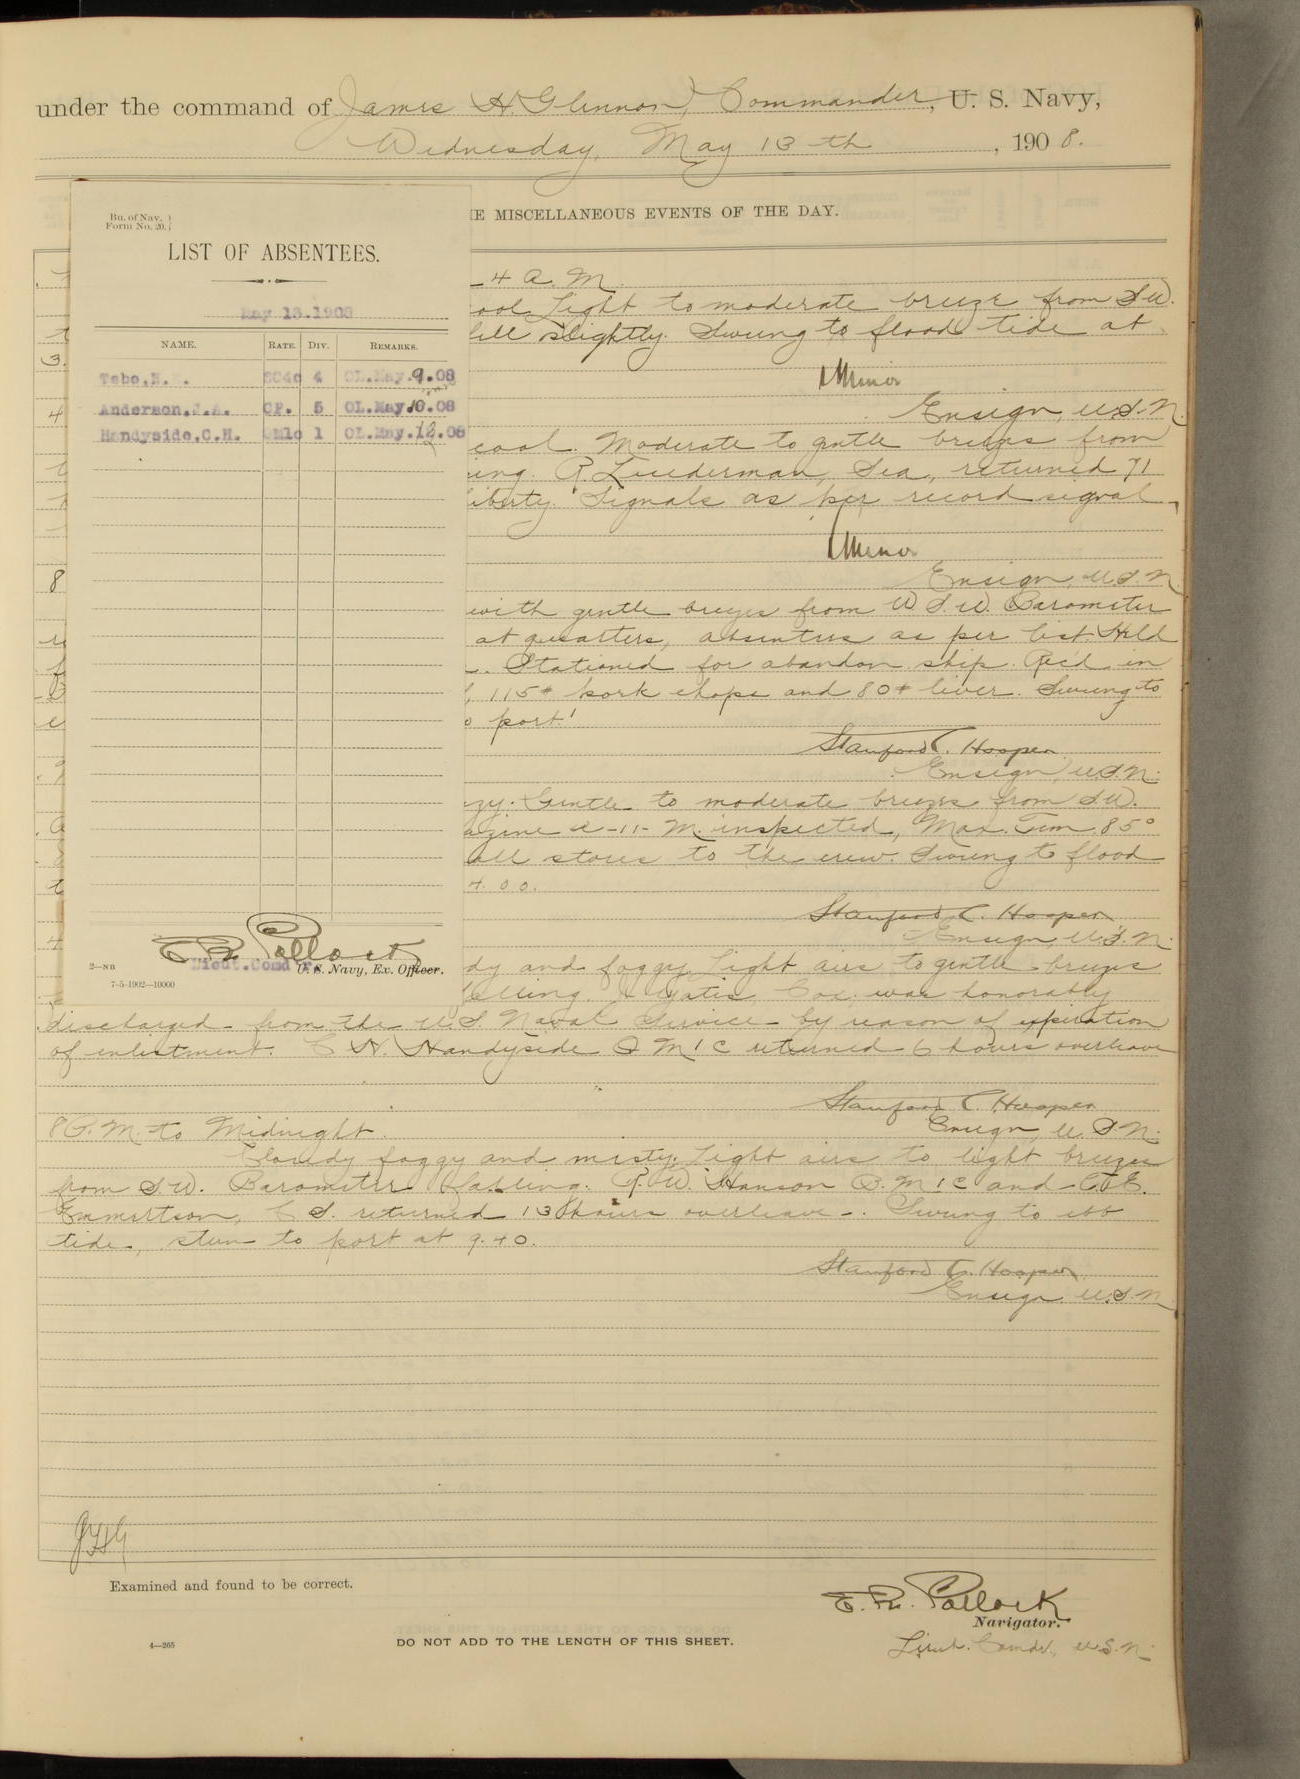 under the command of James H. Glennon, Commander, U. S. Navy,
Wednesday, May 13th, 1908.
MISCELLANEOUS EVENTS OF THE DAY.
Bu. of Nav.
Form No. 20.
LIST OF ABSENTEES.
May 13.1908
NAME. RATE. DIV. REMARKS.
Tebo, 4 OL.May.9.08
Anderson, CP. 5 OL.May.10.08
Handyside,C.H. QM1c 1 OL.May.12.08
E. Pollock
Lieut.Comd'r. U. S. Navy, Ex. Officer.
2—NB
7-5-1902—10000
4 A. M.
Light to moderate breeze from SW.
slightly. Swung to flood tide at
Minor
Ensign, U.S.N.
cool. Moderate to gentle breezes from
R. Luederman, Sea, returned 71
liberty. Signals as per record signal
Minor
Ensign, U.S.N.
with gentle breezes from W S.W. Barometer
at quarters, absentees as per list. Held
Stationed for abandon ship. Rec'd in
115# pork chops and 80# liver. Swung to
port.
Stanford C. Hooper
Ensign, U.S.N.
Gentle to moderate breezes from SW.
A-11-M. inspected, Max. Tem. 85°
all stores to the crew. Swung to flood
4.00.
Stanford C. Hooper
Ensign U.S.N.
and foggy. Light airs to gentle breezes
Yates Cox. was honorably
discharged from the U.S. Naval Service by reason of expiration
of enlistment. C H. Handyside Q M 1 C returned 6 hours overleave
Stanford C. Hooper
Ensign, U.S.N.
8 P.M. to Midnight.
Cloudy foggy and misty. Light airs to light breezes
from S.W. Barometer falling. W. Hanson B.M 1 C and
Emmertson, returned 13 hours overleave. Swung to ebb
tide, stern to port at 9.40.
Stanford C. Hooper
Ensign U.S.N.
Examined and found to be correct.
E. Pollock
Navigator.
Lieut. Comdr., U.S.N.
4—265
DO NOT ADD TO THE LENGTH OF THIS SHEET.